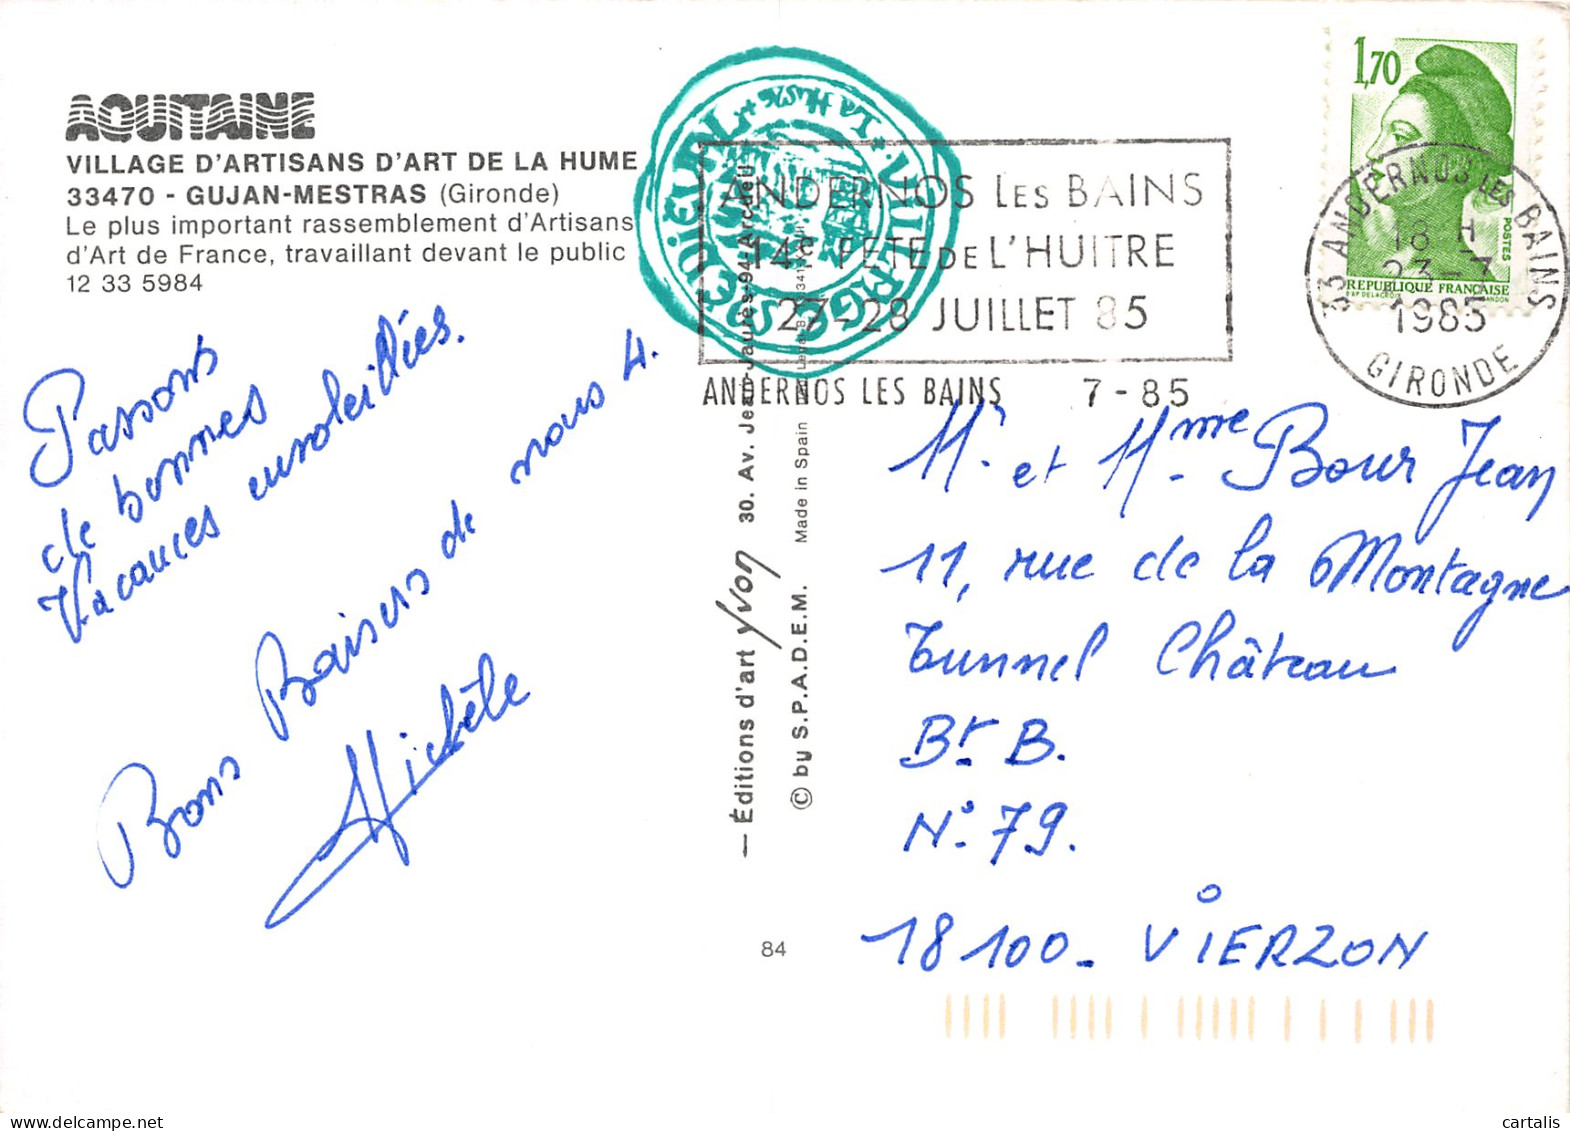 AQUITAINE
VILLAGE D'ARTISANS D'ART DE LA HUME
33470 - GUJAN-MESTRAS (Gironde)
Le plus important rassemblement d'Artisans
d'Art de France, travaillant devant le public
12 33 5984
Passons
de bonnes
Vacances ensoleillées.
Bons Baisers de nous 4.
Michèle
— Éditions d'art Yvon 30. Av. Jean-Jaurès-94-Arcueil
© by S.P.A.D.E.M. Made in Spain
84
LA HUME
ANDERNOS LES BAINS
14E FETE DE L'HUITRE
27-28 JUILLET 85
ANDERNOS LES BAINS 7-85
1,70
POSTES
REPUBLIQUE FRANÇAISE
D'AP DELACROIX GANDON
33 ANDERNOS LES BAINS
18 H
23-7
1985
GIRONDE
Mr et Mme Bour Jean
11, rue de la Montagne
Tunnel Château
Bt B.
N° 79.
18100 - VIERZON
cartalis